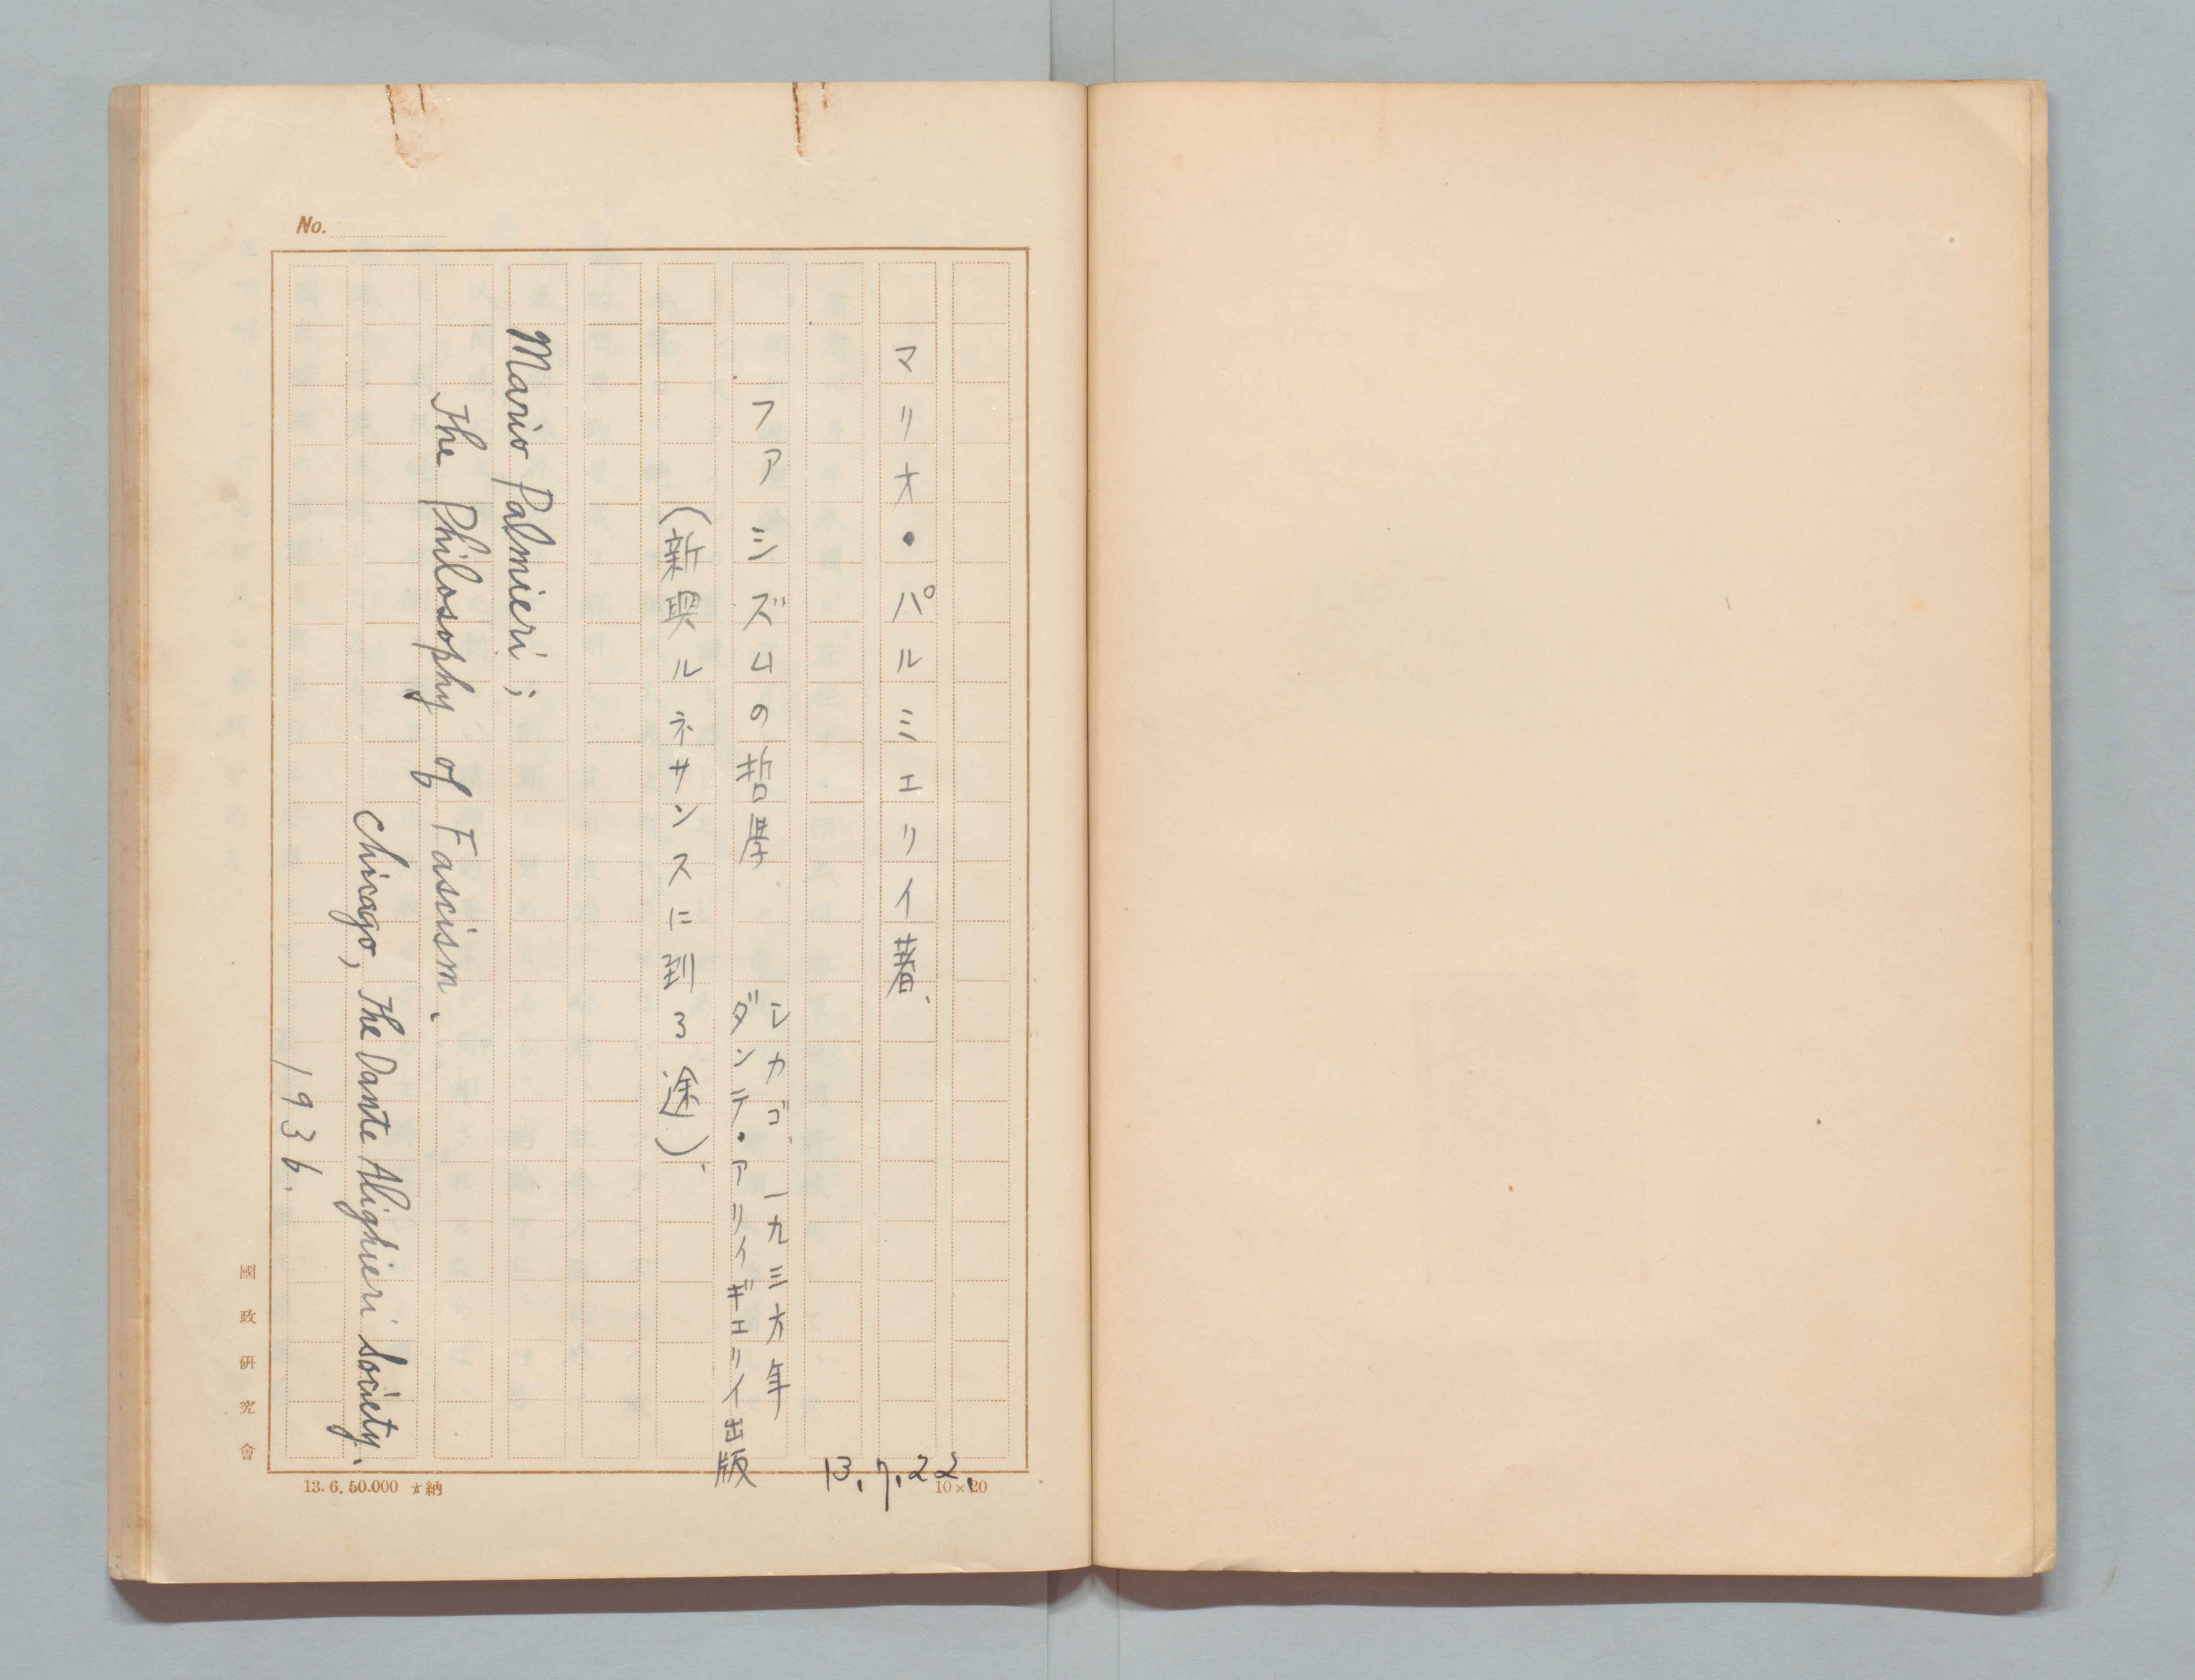 No.
マリオ・パルミエリイ著、
ファシズムの哲学
シカゴ、一九三六年
ダンテ・アリイギエリイ出版
(新興ルネサンスに到る途)、
Mario Palmieri;
The Philosophy of Fascism.
Chicago, The Dante Alighieri Society.
1936.
13.7.22.
國政研究會
13.6.50.000
納
10×20